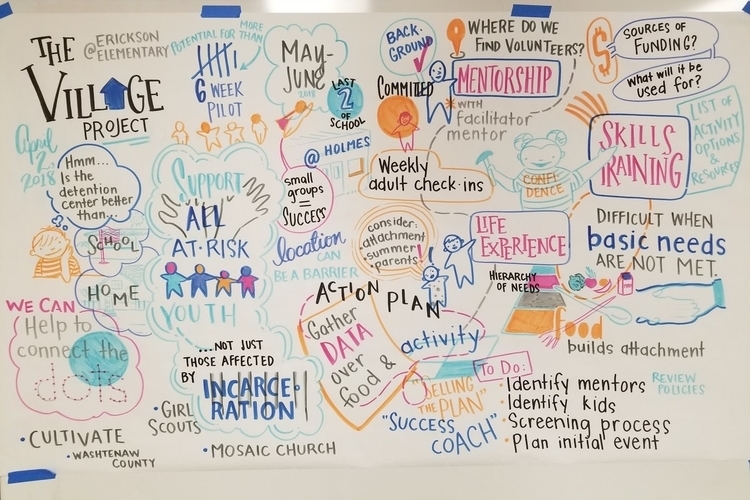 THE
VILLAGE
PROJECT
@ERICKSON
ELEMENTARY
April
2,
2018
POTENTIAL FOR MORE
THAN
6 WEEK
PILOT
MAY-
JUNE
2018
LAST
2
OF
SCHOOL
@ HOLMES
small
groups
=
SUCCESS
location
CAN
BE A BARRIER
Hmm...
Is the
detention
center better
than...
SCHOOL
HOME
WE CAN
Help to
connect the
dots
SUPPORT
ALL
AT-RISK
YOUTH
...NOT JUST
THOSE AFFECTED
BY
INCARCE-
RATION
• CULTIVATE
• WASHTENAW
COUNTY
• GIRL
SCOUTS
• MOSAIC CHURCH
BACK-
GROUND
COMMITTED
WHERE DO WE
FIND VOLUNTEERS?
MENTORSHIP
*WITH
facilitator
mentor
Weekly
adult check-ins
consider:
• attachment
• summer
• parents!
CONFI
DENCE
LIFE
EXPERIENCE
SOURCES OF
FUNDING?
What will it be
used for?
$
SKILLS
TRAINING
LIST OF
ACTIVITY
OPTIONS
&
RESOURCES
DIFFICULT WHEN
basic needs
ARE NOT MET.
HIERARCHY
OF NEEDS
food
builds attachment
ACTION PLAN
Gather
DATA
over
food &
activity
"SELLING
THE PLAN"
"SUCCESS
COACH"
To Do:
• Identify mentors
• Identify kids
• Screening process
• Plan initial event
REVIEW
POLICIES